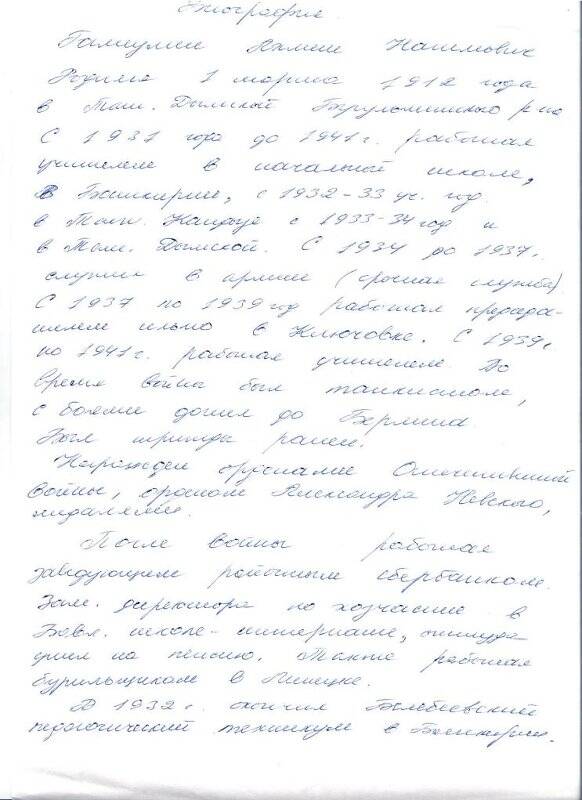 Биография.
Ахмет
Родился 1 марта 1912 года
в Тат. Дымской р-на
С 1931 года до 1941 г. работал
учителем в начальной школе,
в Башкирии, с 1932-33 уч. год.
в с 1933-34 год и
в Тат. Дымской. С 1934 до 1937г.
служил в армии (срочная служба).
С 1937 по 1939 год работал председа-
телем в Ключовке. С 1939г
по 1941 г. работал учителем. Во
время войны был танкистом,
с боями дошел до Берлина.
Был трижды ранен.
Награжден орденами Отечественной
войны, орденом Александра Невского,
медалями.
После войны работал
заведующем районным сбербанком.
Зам. директора по хозчасти в
Бавл. школе-интернате, оттуда
ушел на пенсию. Также работал
бурильщиком в
В 1932 г. окончил Белебеевский
педогогический техникум в Башкирии.